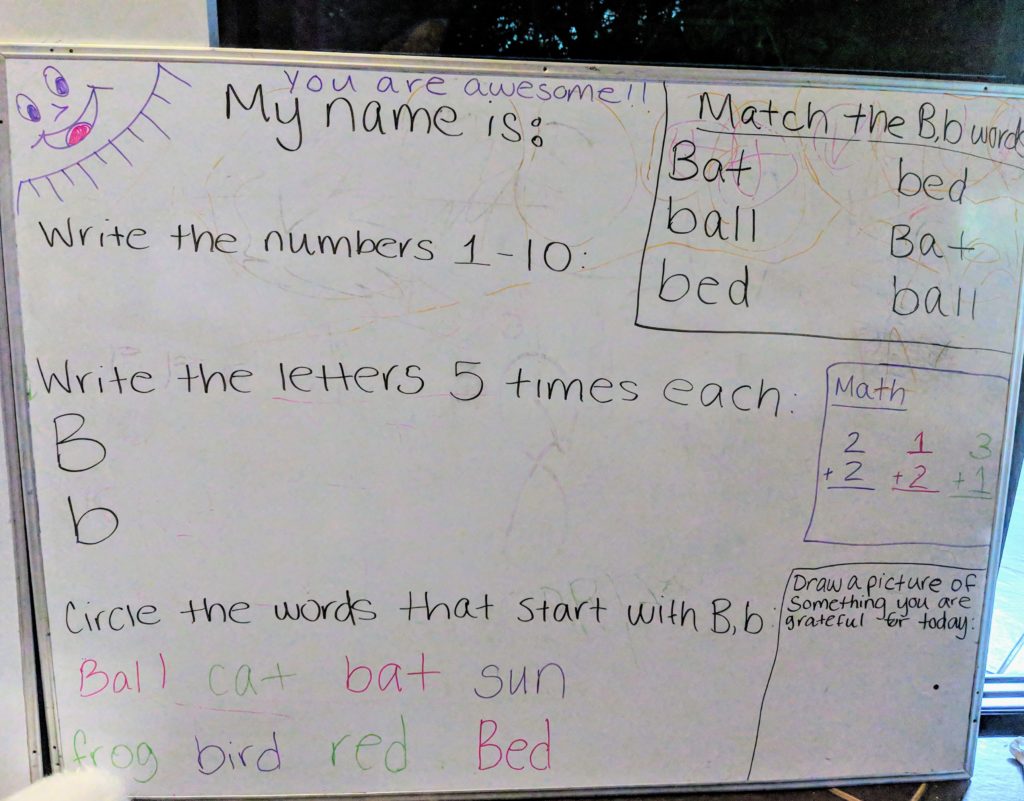 you are awesome!!
My name is:
Write the numbers 1-10:
Match the B,b words
Bat bed
ball Bat
bed ball
Write the letters 5 times each:
B
b
Math
2 1 3
+2 +2 +1
Circle the words that start with B,b:
Ball cat bat sun
frog bird red Bed
Draw a picture of
Something you are
grateful for today: